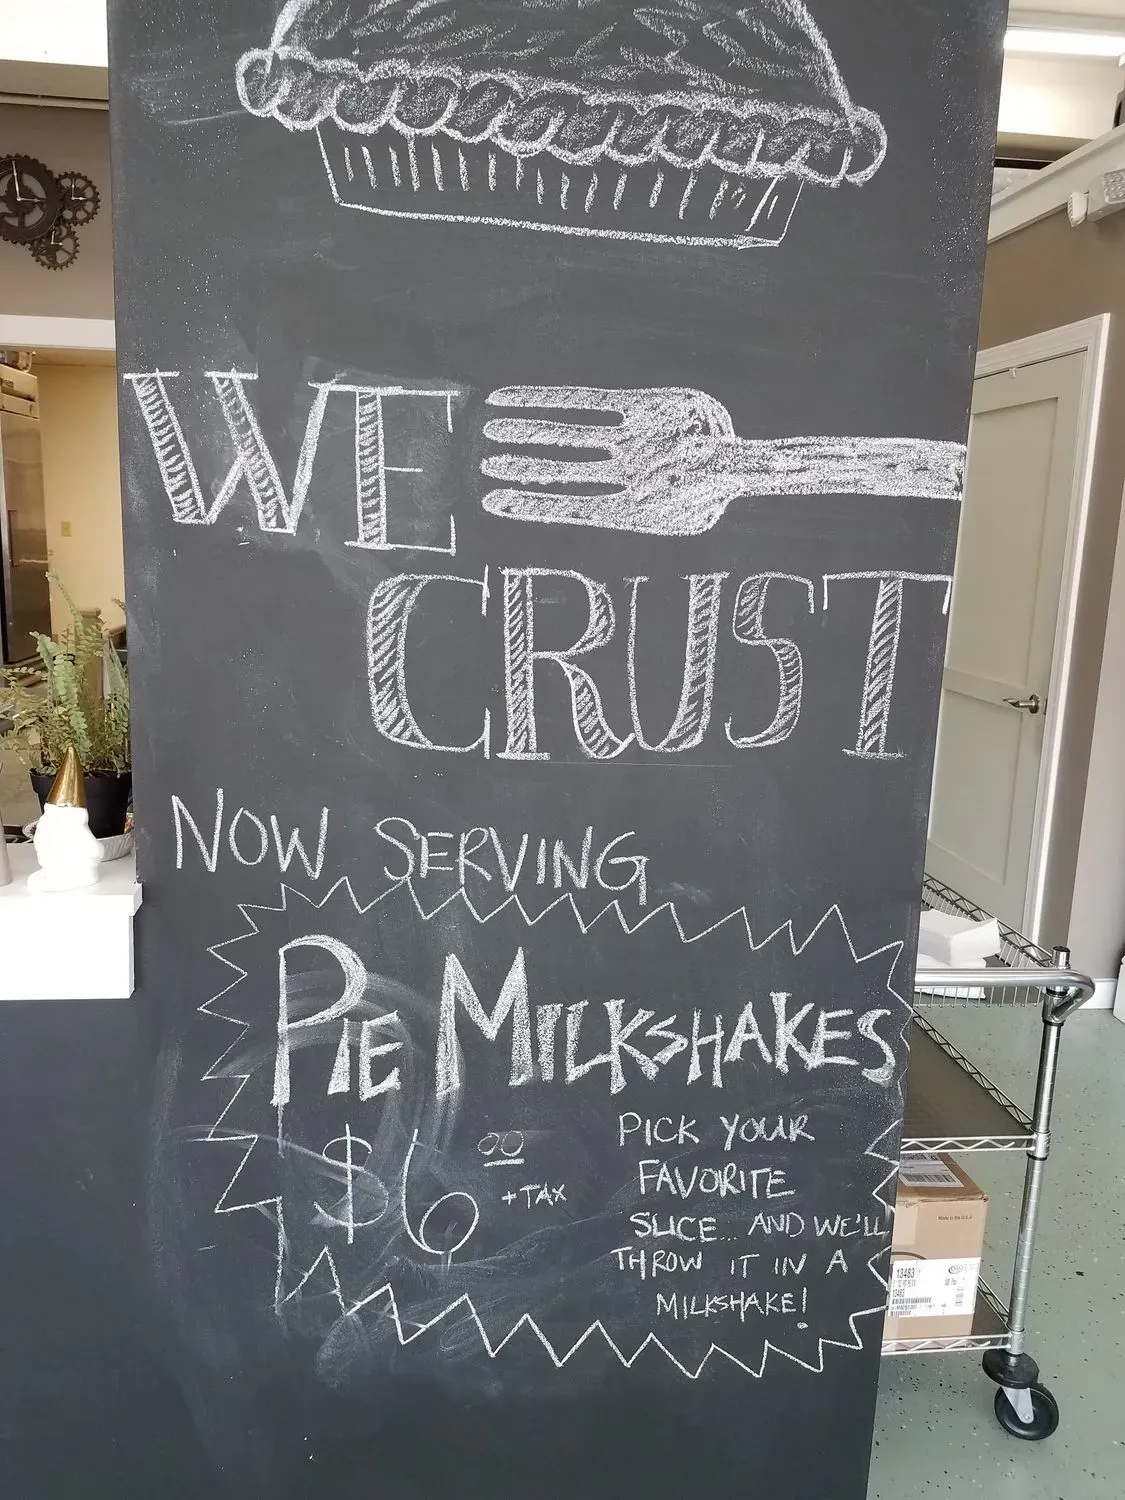 WE
CRUST
NOW SERVING
PIE MILKSHAKES
$6 00 +TAX
PICK YOUR
FAVORITE
SLICE... AND WE'LL
THROW IT IN A
MILKSHAKE!
Made in the U.S.A
13483